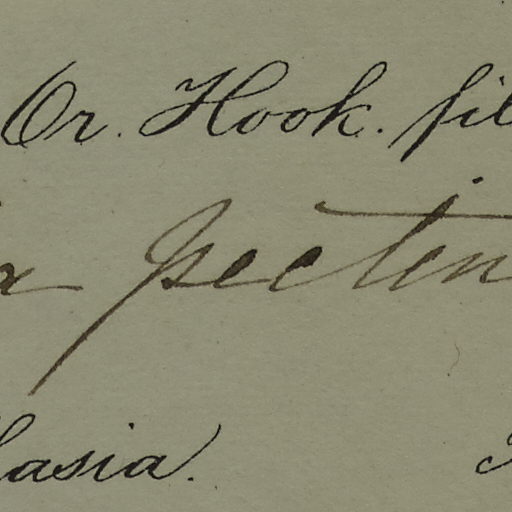 Or. Hook. fil
a pecten
lasia.